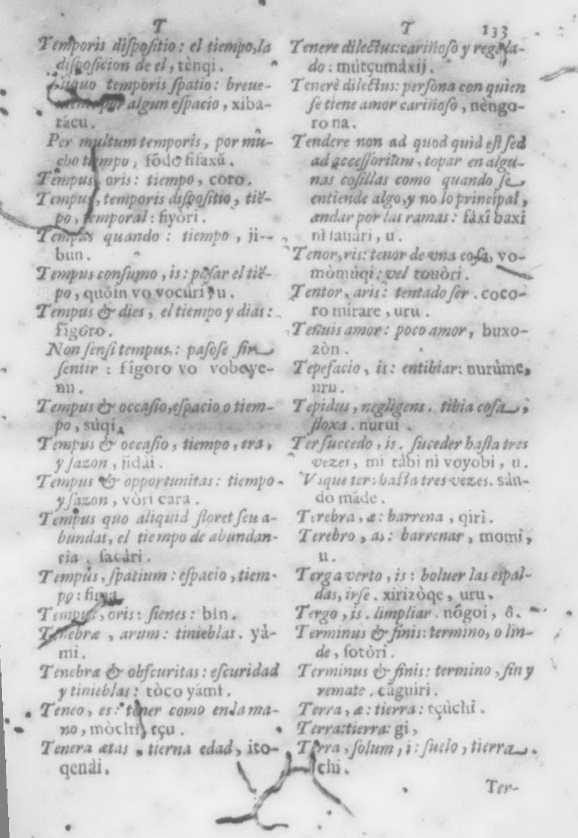 T
Temporis dispositio: el tiempo, la
disposicion de el, tènqi.
Aliquo temporis spatio: breve-
algun espacio, xiba-
racu.
Per multum temporis, por mu-
cho tiempo, fodo fifaxŭ.
Tempus, oris: tiempo, coro.
Tempus, temporis dispositio, tiẽ-
po, temporal: fiyori.
Tempus quando: tiempo, ji-
bun.
Tempus consumo, is: passar el tiẽ-
po, quòin vo vocuri, u.
Tempus & dies, el tiempo y dias:
figoro.
Non sensi tempus.: pasose sin
sentir: figoro vo voboye-
nu.
Tempus & occasio, espacio o tiem-
po, súqi.
Tempus & occasio, tiempo, tra,
y sazon, jidai.
Tempus & opportunitas: tiempo
y sazon, vòri cara.
Tempus quo aliquid floret seu a-
bundat, el tiempo de abundan-
cia, sacári.
Tempus, spatium: espacio, tiem-
po:
Tempus, oris: sienes: bin.
Tenebræ, arum: tinieblas. yà-
mi.
Tenebræ & obscuritas: escuridad
y tinieblas: tòco yámi.
Teneo, es: tener como en la ma-
no, mòchi, tçu.
Tenera ætas, tierna edad, ito-
qenài.
T 133
Tenere dilectus: cariñoso y regala-
do: mutçumáxij.
Tenerè dilectus: persona con quien
se tiene amor cariñoso, nèngo-
ro na.
Tendere non ad quod quid est sed
ad accessorium, topar en algu-
nas cosillas como quando se
entiende algo, y no lo principal,
andar por las ramas: faxi baxi
ni tauari, u.
Tenor, ris: tenor de una cosa, vo-
mòmuqi: vel
Tentor, aris: tentado ser. coco-
ro mirare, uru.
Tenuis amor: poco amor, buxo-
zòn.
Tepefacio, is: entibiar: nurùme,
uru.
Tepidus, negligens. tibia cosa,
floxa. nurui.
Ter succedo, is. suceder hasta tres
vezes, mi tàbi ni voyobi, u.
Vsque ter: hasta tres vezes. sàn-
do máde.
Terebra, æ: barrena, qiri.
Terebro, as: barrenar, momi,
u.
Terga verto, is: bolver las espal-
das, irse. xirizòqe, uru.
Tergo, is. limpliar. nôgoi, ô.
Terminus & finis: termino, o lin-
de, sotòri.
Terminus & finis: termino, fin y
remate. càguiri.
Terra, æ: tierra: tçùchi.
Terra: tierra: gi,
Terra, solum, i: suelo, tierra.
chi.
Ter-